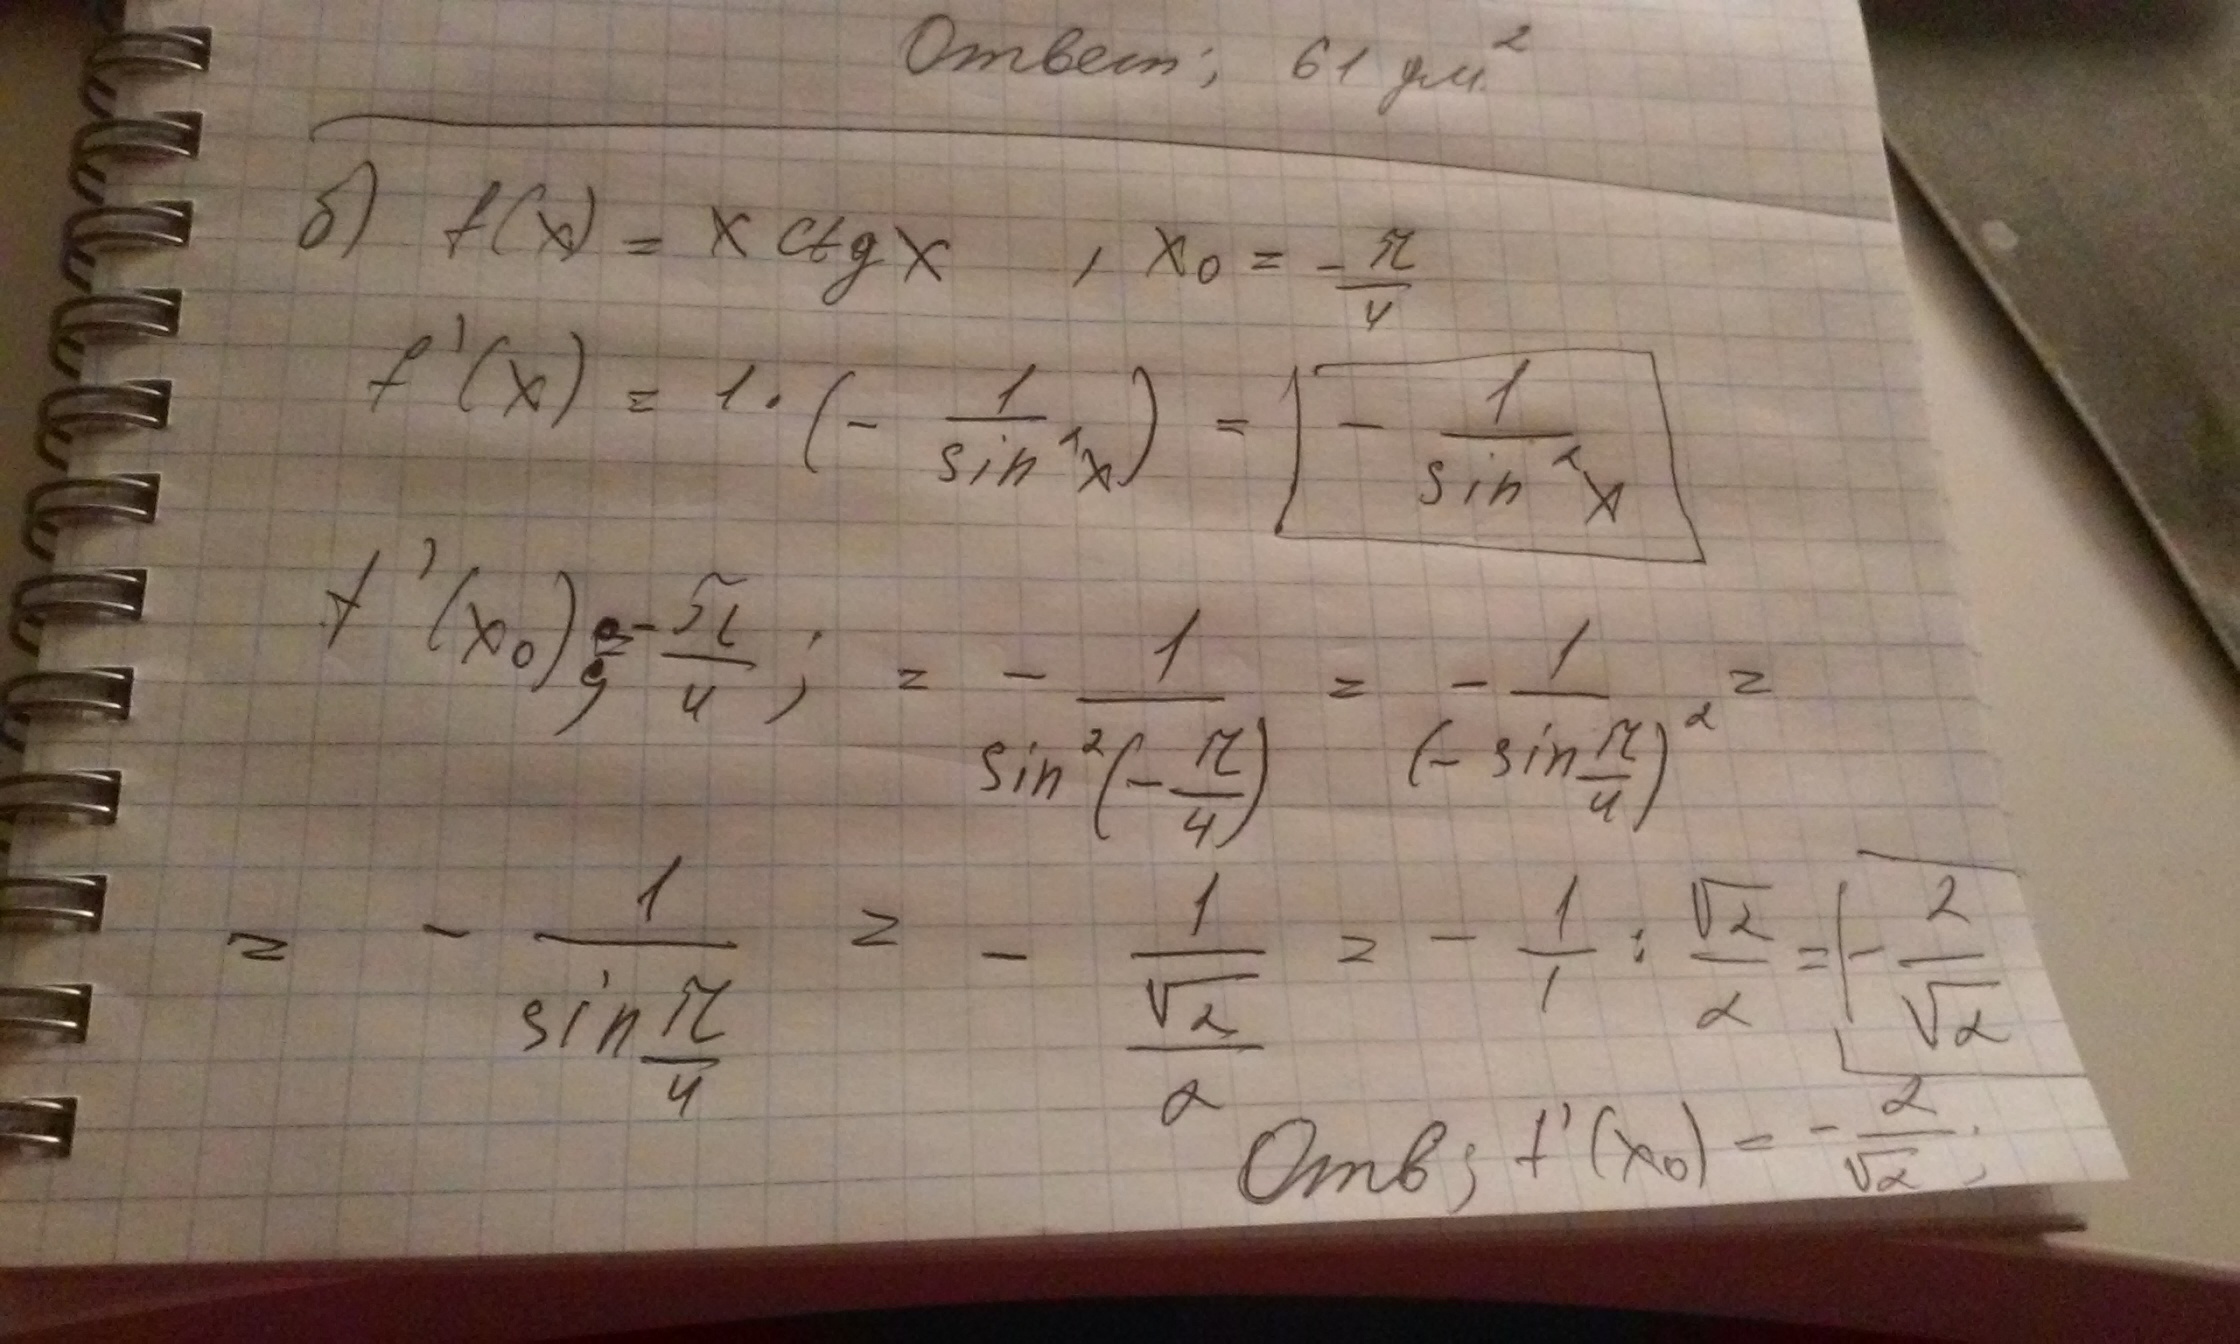 Ответ; 61 дм²
б) f(x) = x ctg x , x₀ = -π/4
f'(x) = 1·(- 1/sin²x) = - 1/sin²x
f'(x₀) = -π/4; = - 1/sin²(-π/4) = - 1/(- sin π/4)² =
= - 1/sin π/4 = - 1/(√2/2) = - 1/1 : √2/2 = - 2/√2
Отв; f'(x₀) = - 2/√2;